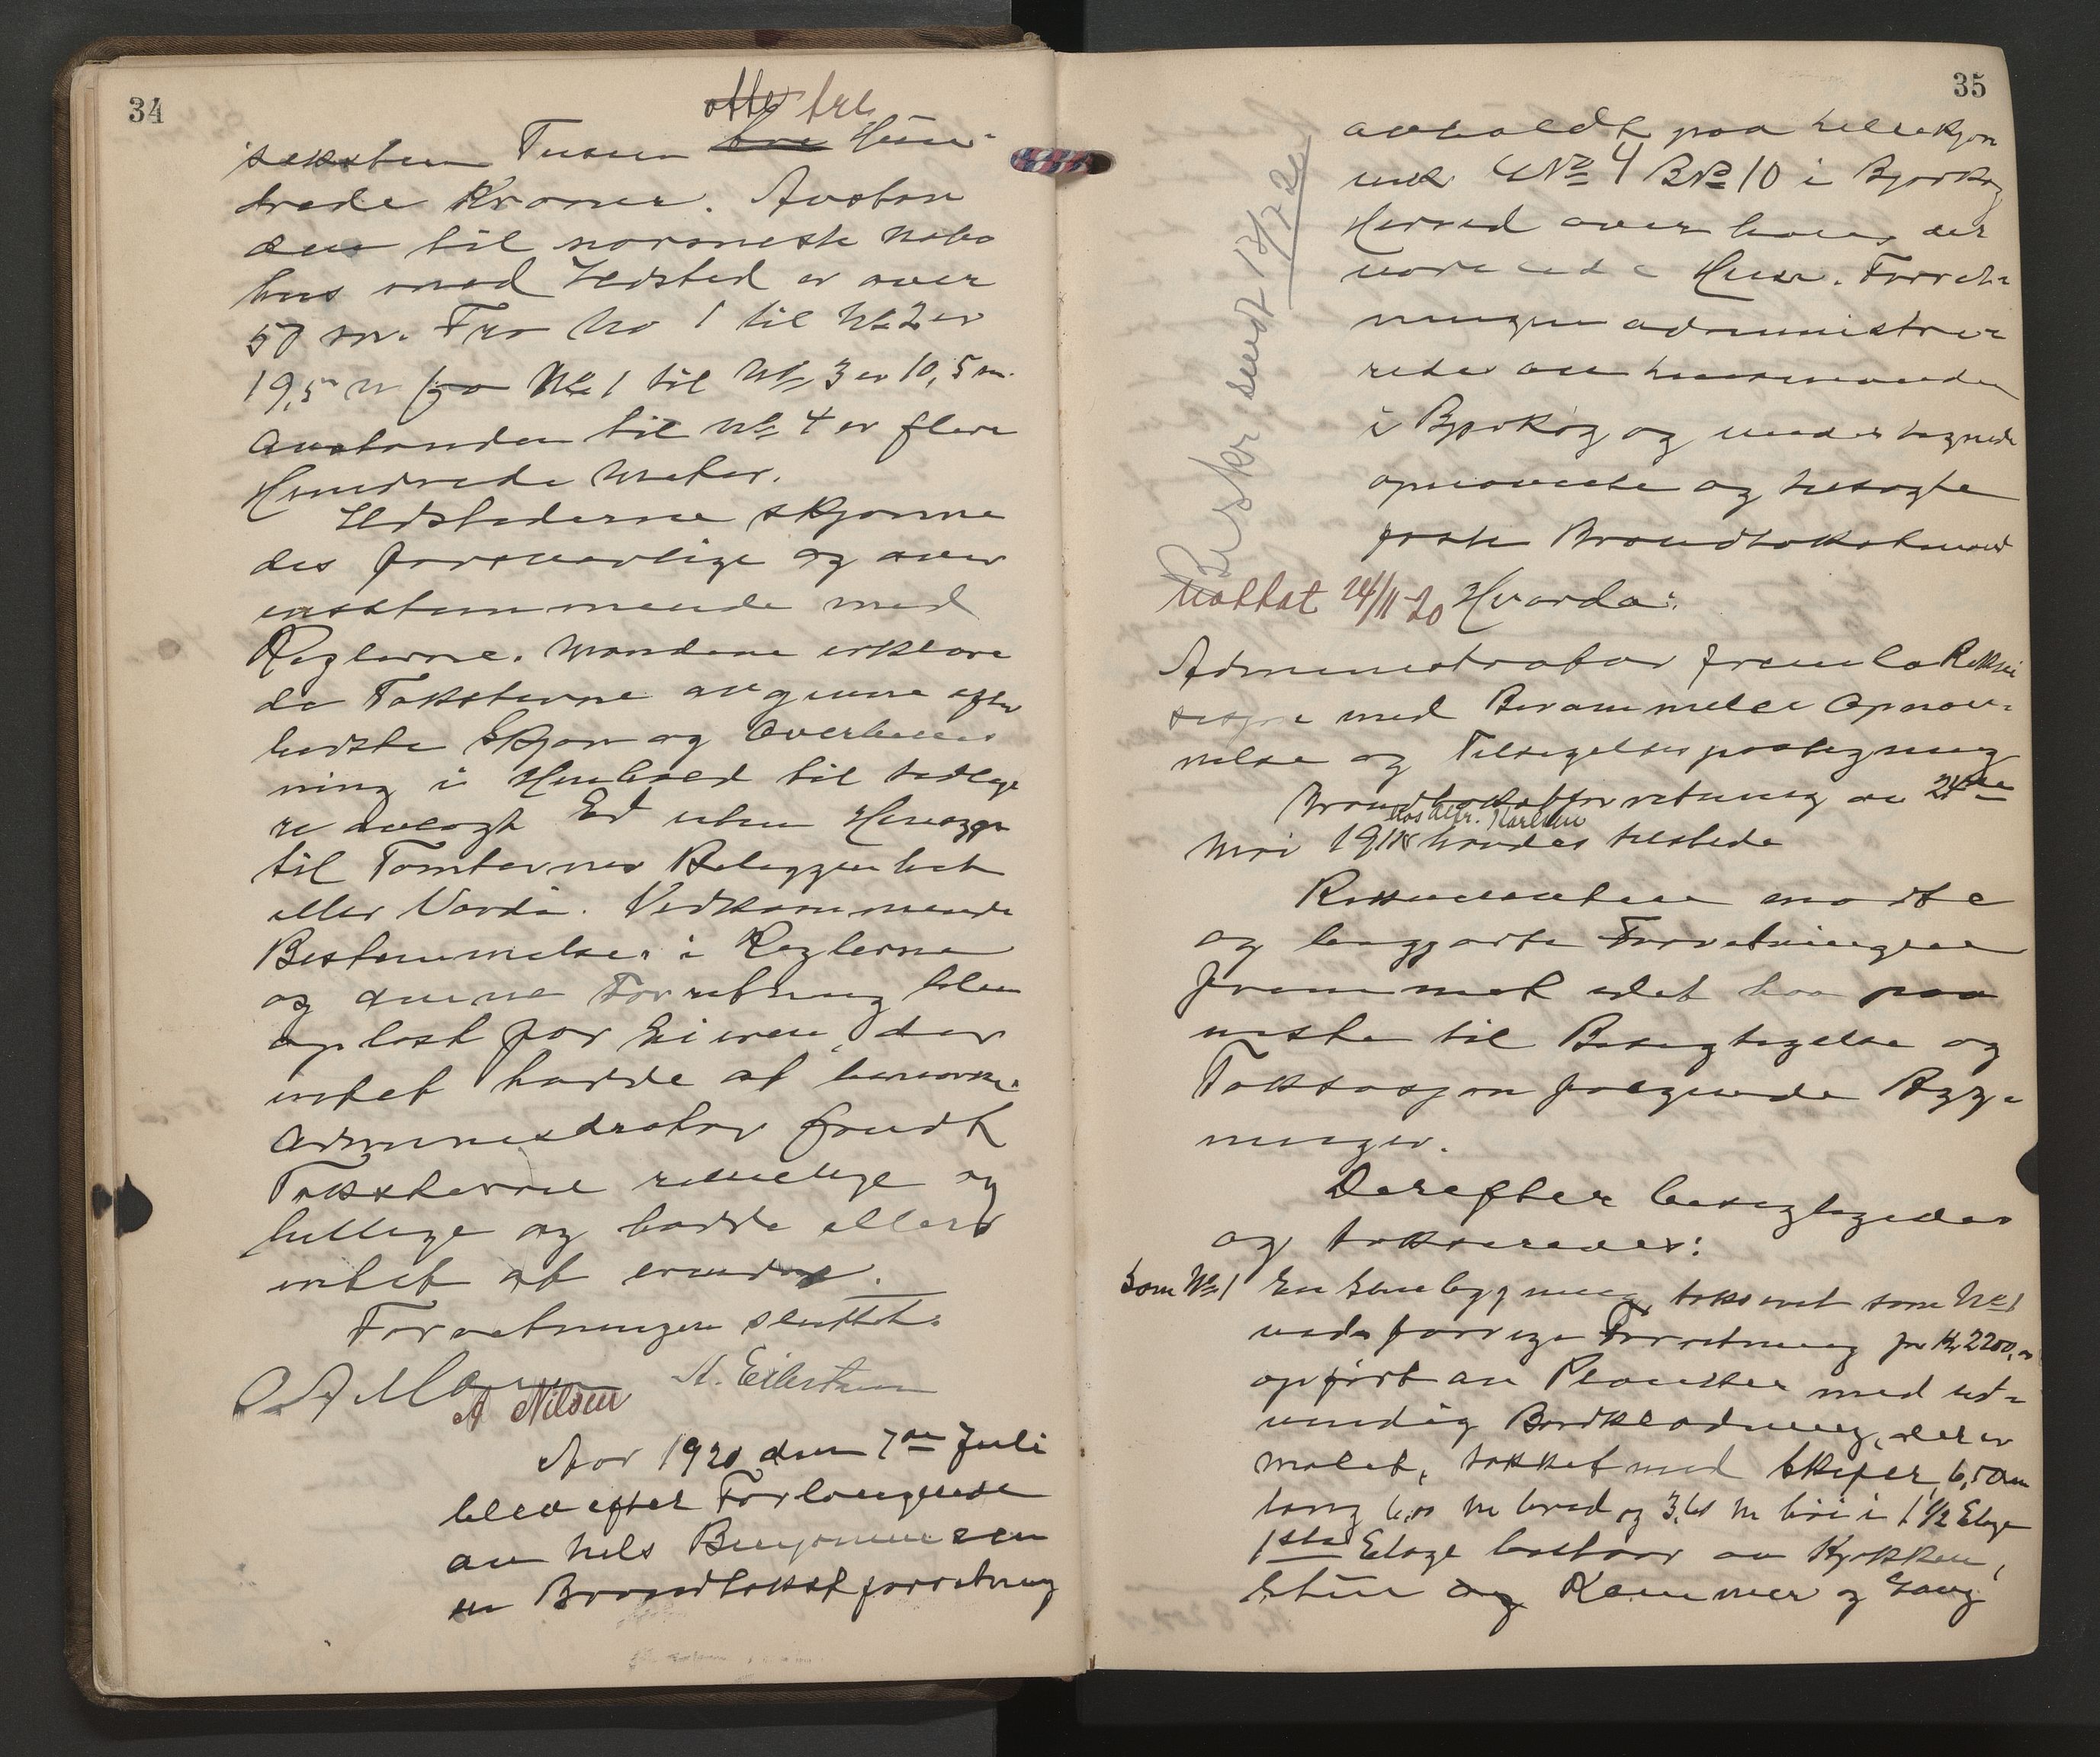 34
otte tre
seksten Tusen tre Hun-
drede Kroner. Avstan
den til nærmeste Nabo
hus med Ildsted er over
50 m. Fra No 1 til No 2 er
19,5 m fra No 1 til No 3 er 10,5 m.
Avstanden til No 4 er flere
Hundrede Meter.
Ildstederne skjønne
des forsvarlige og over
ensstemmende med
Reglerne. Mændene erklære
de Taksterne avgivne efter
bedste Skjøn og Overbevis
ning i Henhold til tidlige
re avlagt Ed uten Hensyn
til Tomternes Beliggenhet
eller Værdi. Vedkommende
Bestemmelser i Reglerne
og denne Forretning blev
oplæst for Eieren, der
intet hadde at bemærke.
Administrator fandt
Taksterne rimelige og
billige og hadde ellers
intet at erindre.
Forretningen sluttet.
A. Eilertsen
A Nilsen
Aar 1920 den 7de Juli
blev efter Forlangende
av Nils Benjaminsen
en Brandtakstforretning
35
avholdt paa
GNo 4 BNo 10 i Bjarkøy
Herred over hans der
værende Huse. Forret-
ningen administre-
redes av Lensmanden
i Bjarkøy og undertegnede
opnævnte og
faste Brandtakstmænd
Beskr. sendt 13/7 20
Vakkat 24/11-20 Hvorda:
Administrator fremla Rekvi
sisjon med Berammelse Opnæv-
nelse og Tilsigelsespaategning
Brandtakstforretning av 24de
Mai 1918 havdes tilstede
Rekvirenten møtte
og begjærte Forretningen
fremmet idet han paa
viste til Besigtigelse og
Taksasjon følgende Byg-
ninger.
Derefter besigtigedes
og takseredes:
Som No 1 En Vaanebygning, taksert som No 1
ved forrige Forretning for Kr 2200,00
opført av Planker med ut-
vendig Bordklædning, der er
malet, tækket med Skifer, 6,50 m
lang 6,00 m bred og 3,60 m høi i 1 1/2 Etage
1ste Etage bestaar av Kjøkken,
Stue og Kammer og Gang